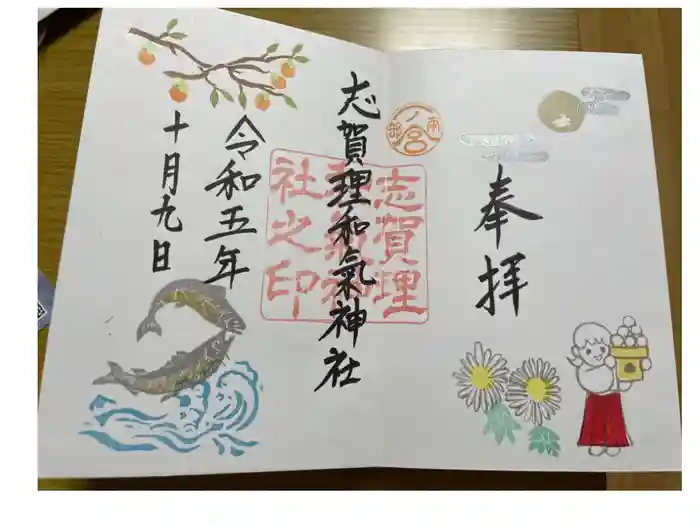 奉拝
南部一ノ宮
志賀理和氣神社
志賀理
和氣神
社之印
令和五年
十月九日